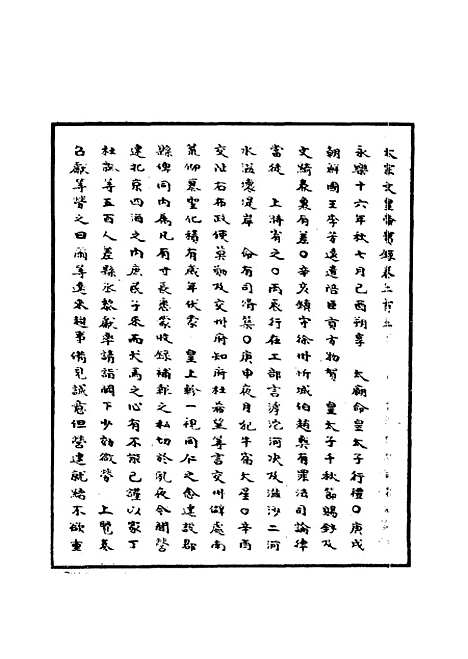 太宗文皇帝實錄卷
永樂十六年秋七月己酉朔享　太廟命皇太子行禮○庚戌
朝鮮國王李芳遠遣陪臣貢方物賀　皇太子千秋節賜鈔及
文綺表裏有差○辛亥鎮守徐州忻城伯趙彝有罪法司論律
當徒　上特宥之○丙辰行在工部言滹沱河決及滋沙二河
水溢壞堤岸　命有司脩築○庚申夜月犯牛宿大星○辛酉
交阯右布政使莫勛及交州府知府杜希望等言交州僻處南
荒仰慕聖化積有歲年伏蒙　皇上軫一視同仁之念建設郡
縣俾同內屬凡有寸長悉蒙收錄補報之私切於夙夜今聞營
建北京四海之內庶民子來而犬馬之心有不能已謹以家丁
杜　等五百人差縣丞黎獻率請詣闕下少効微勞　上覽表
召獻等勞之曰爾等遠來趨事備見誠意但營建就緒不欲重